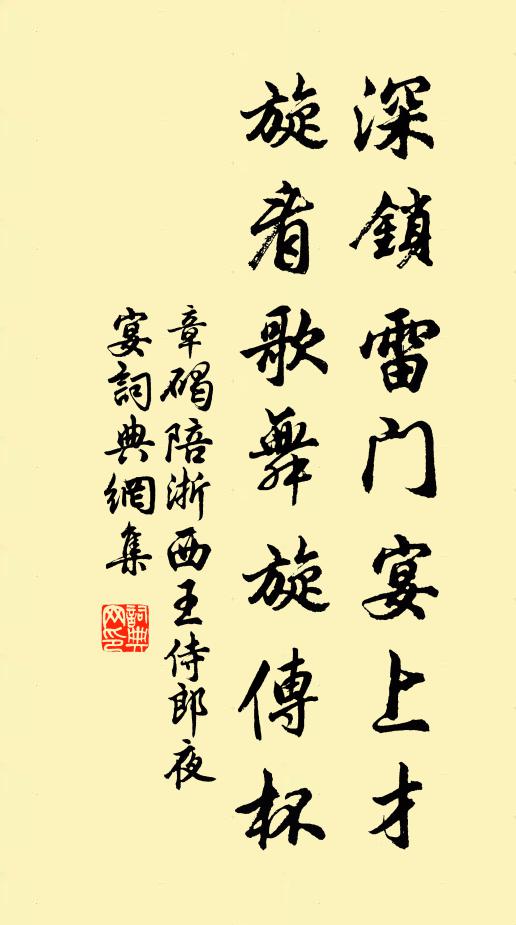 深鎖雷門宴上才
旋看歌舞旋傳杯
章碣陪浙西王侍郎夜
宴詞典網集
詞典网印